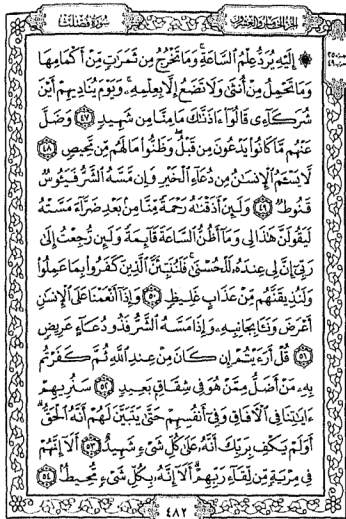 سُورَةُ فُصِّلَتْ
الجزء الخامس والعشرون
إِلَيْهِ يُرَدُّ عِلْمُ السَّاعَةِ ۚ وَمَا تَخْرُجُ مِن ثَمَرَاتٍ مِّنْ أَكْمَامِهَا
وَمَا تَحْمِلُ مِنْ أُنثَىٰ وَلَا تَضَعُ إِلَّا بِعِلْمِهِ ۚ وَيَوْمَ يُنَادِيهِمْ أَيْنَ
شُرَكَاءِى قَالُوا ءَاذَنَّاكَ مَا مِنَّا مِن شَهِيدٍ ٤٧ وَضَلَّ
عَنْهُم مَّا كَانُوا يَدْعُونَ مِن قَبْلُ ۖ وَظَنُّوا مَا لَهُم مِّن مَّحِيصٍ ٤٨
لَّا يَسْـَٔمُ الْإِنسَانُ مِن دُعَاءِ الْخَيْرِ وَإِن مَّسَّهُ الشَّرُّ فَيَـُٔوسٌ
قَنُوطٌ ٤٩ وَلَئِنْ أَذَقْنَاهُ رَحْمَةً مِّنَّا مِن بَعْدِ ضَرَّاءَ مَسَّتْهُ
لَيَقُولَنَّ هَٰذَا لِى وَمَا أَظُنُّ السَّاعَةَ قَائِمَةً وَلَئِن رُّجِعْتُ إِلَىٰ
رَبِّى إِنَّ لِى عِندَهُ لَلْحُسْنَىٰ ۚ فَلَنُنَبِّئَنَّ الَّذِينَ كَفَرُوا بِمَا عَمِلُوا
وَلَنُذِيقَنَّهُم مِّنْ عَذَابٍ غَلِيظٍ ٥٠ وَإِذَا أَنْعَمْنَا عَلَى الْإِنسَانِ
أَعْرَضَ وَنَـَٔا بِجَانِبِهِ وَإِذَا مَسَّهُ الشَّرُّ فَذُو دُعَاءٍ عَرِيضٍ
٥١ قُلْ أَرَءَيْتُمْ إِن كَانَ مِنْ عِندِ اللَّهِ ثُمَّ كَفَرْتُم
بِهِ مَنْ أَضَلُّ مِمَّنْ هُوَ فِى شِقَاقٍ بَعِيدٍ ٥٢ سَنُرِيهِمْ
ءَايَاتِنَا فِى الْءَافَاقِ وَفِى أَنفُسِهِمْ حَتَّىٰ يَتَبَيَّنَ لَهُمْ أَنَّهُ الْحَقُّ ۗ
أَوَلَمْ يَكْفِ بِرَبِّكَ أَنَّهُ عَلَىٰ كُلِّ شَىْءٍ شَهِيدٌ ٥٣ أَلَا إِنَّهُمْ
فِى مِرْيَةٍ مِّن لِّقَاءِ رَبِّهِمْ ۗ أَلَا إِنَّهُ بِكُلِّ شَىْءٍ مُّحِيطٌ ٥٤
٤٨٢